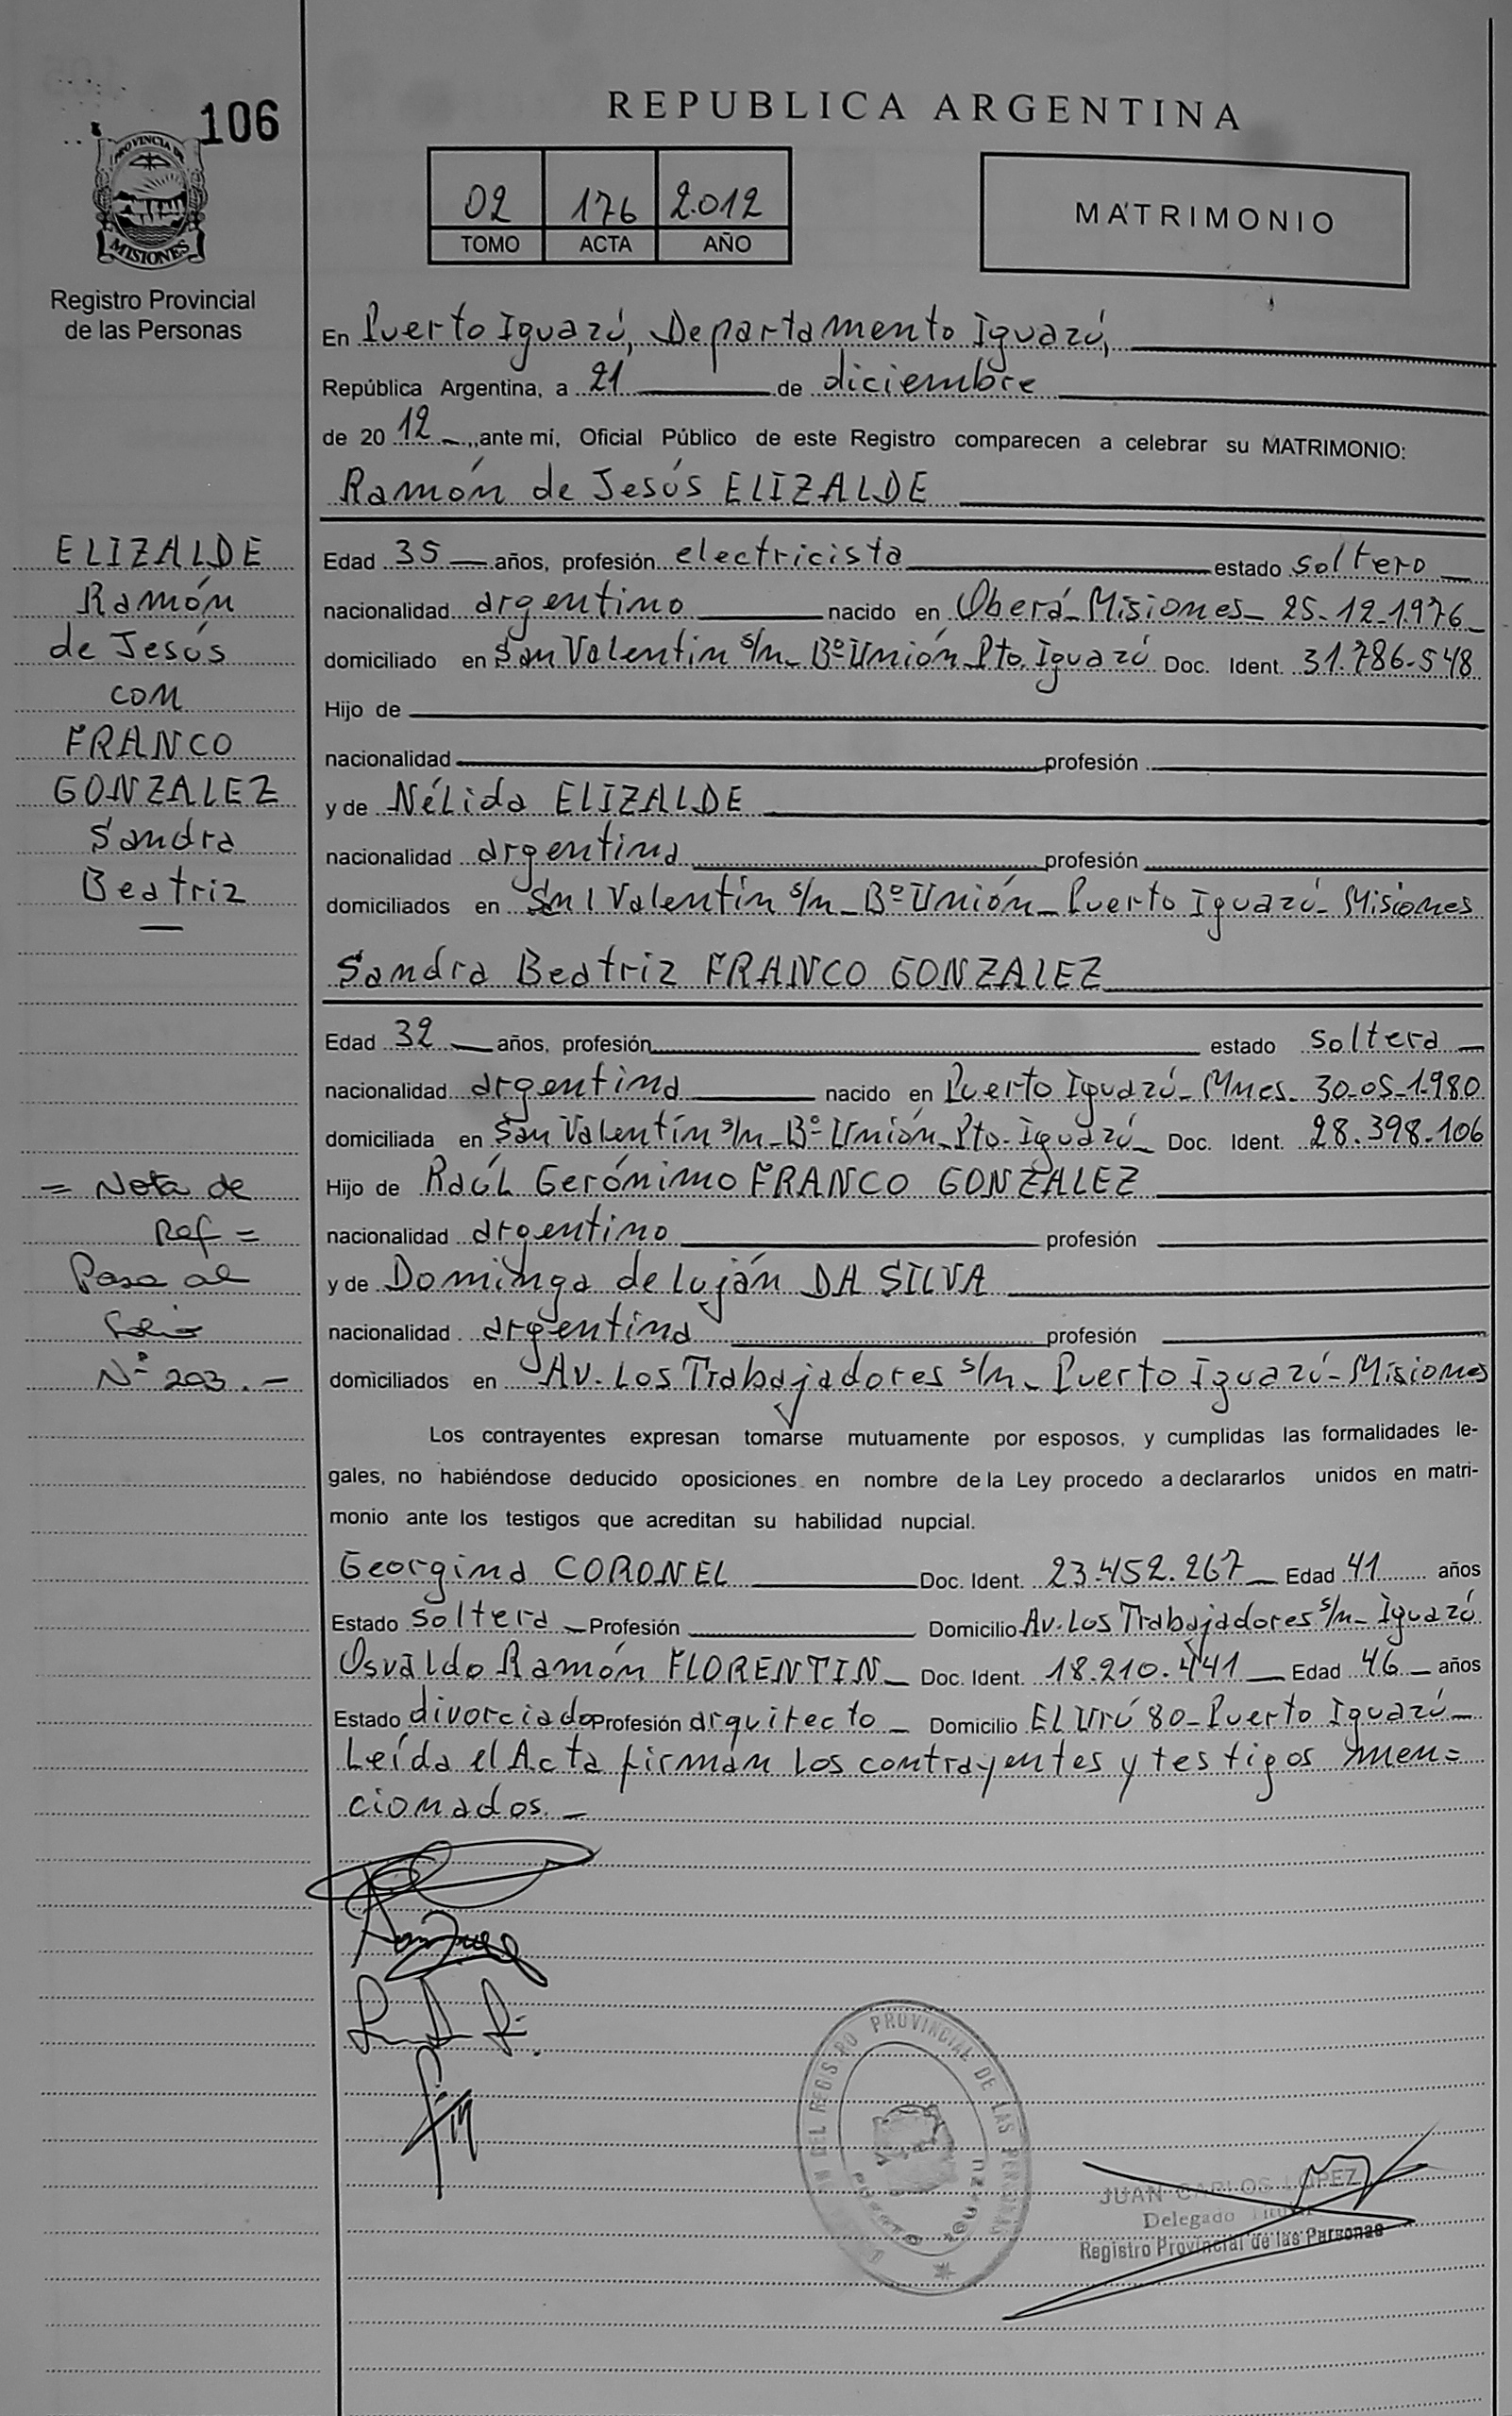 106
REPUBLICA ARGENTINA
PROVINCIA DE
MISIONES
02 176 2.012
TOMO ACTA AÑO
MATRIMONIO
Registro Provincial
de las Personas
En Puerto Iguazú, Departamento Iguazú,
República Argentina, a 21 de diciembre
de 20 12 ante mí, Oficial Público de este Registro comparecen a celebrar su MATRIMONIO:
Ramón de Jesús ELIZALDE
ELIZALDE
Ramón
de Jesús
con
FRANCO
GONZALEZ
Sandra
Beatriz
Edad 35 años, profesión electricista estado soltero
nacionalidad argentino nacido en Oberá-Misiones- 25-12-1.976
domiciliado en San Valentin s/n- Bº Unión-Pto. Iguazú Doc. Ident. 31.786.548
Hijo de
nacionalidad profesión
y de Nélida ELIZALDE
nacionalidad argentina profesión
domiciliados en Valentín s/n-Bº Unión-Puerto Iguazú-Misiones
Sandra Beatriz FRANCO GONZALEZ
Edad 32 años, profesión estado soltera
nacionalidad argentina nacido en Puerto Iguazú-Mnes. 30-05-1.980
domiciliada en San Valentín s/n-Bº Unión-Pto. Iguazú- Doc. Ident. 28.398.106
Hijo de Raúl Gerónimo FRANCO GONZALEZ
nacionalidad argentino profesión
y de Dominga de Luján DA SILVA
nacionalidad argentina profesión
domiciliados en Av. Los Trabajadores s/n-Puerto Iguazú-Misiones
= Nota de
Ref =
Pasa al
Folio
Nº 203.-
Los contrayentes expresan tomarse mutuamente por esposos, y cumplidas las formalidades le-
gales, no habiéndose deducido oposiciones en nombre de la Ley procedo a declararlos unidos en matri-
monio ante los testigos que acreditan su habilidad nupcial.
Georgina CORONEL Doc. Ident. 23.452.267 Edad 41 años
Estado soltera Profesión Domicilio Av. Los Trabajadores s/n- Iguazú
Osvaldo Ramón FLORENTIN Doc. Ident. 18.210.441 Edad 46 años
Estado divorciado Profesión arquitecto Domicilio El Urú 80-Puerto Iguazú-
Leída el Acta firman los contrayentes y testigos men=
cionados.-
DEL REGISTRO PROVINCIAL DE LAS PERSONAS
JUAN CARLOS LOPEZ
Delegado Titular
Registro Provincial de las Personas